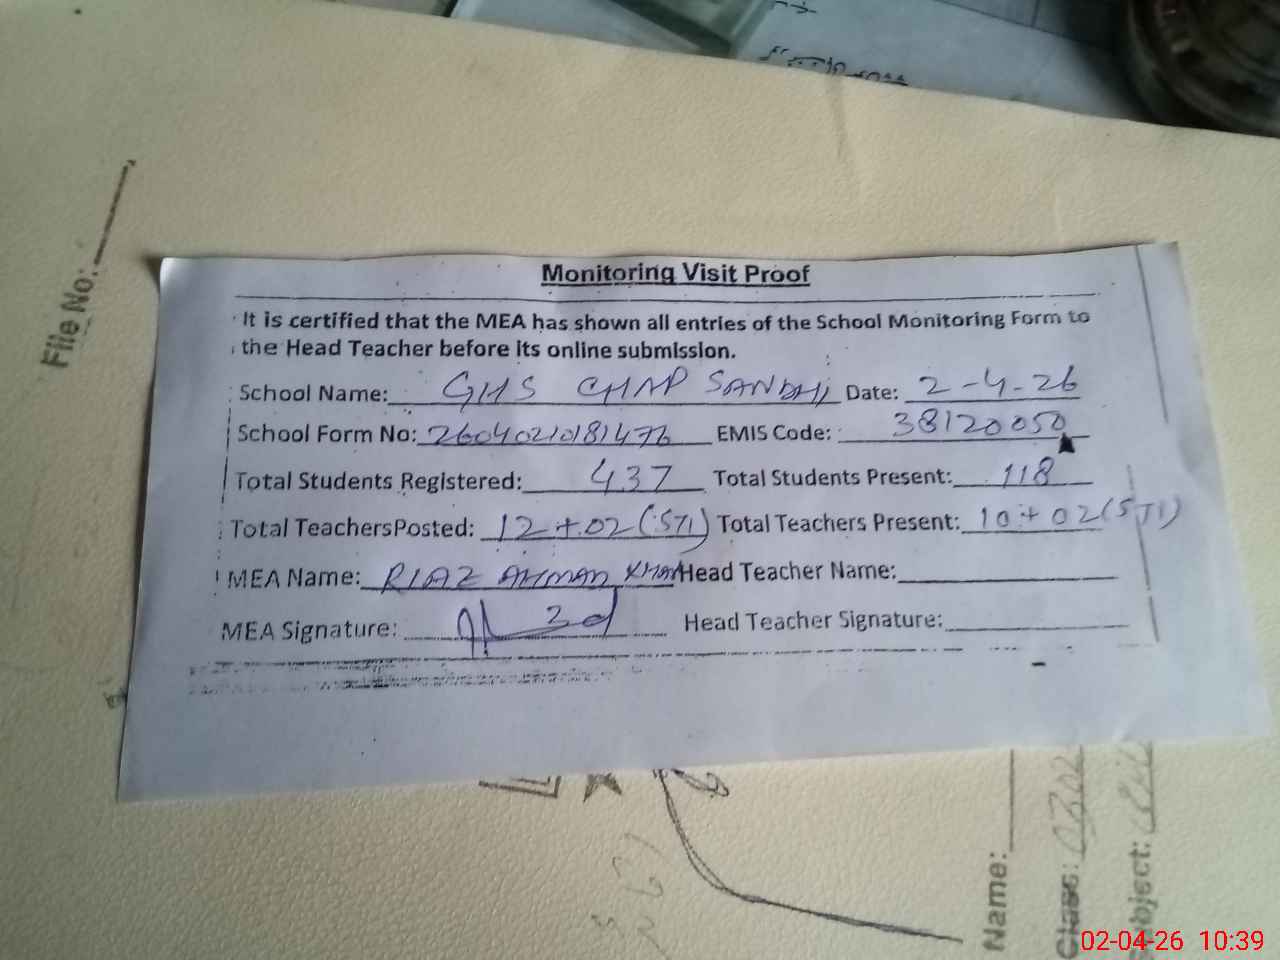 Monitoring Visit Proof
It is certified that the MEA has shown all entries of the School Monitoring Form to
the Head Teacher before its online submission.
School Name: GHS CHAP SANDHI Date: 2-4-26
School Form No: EMIS Code: 38120050
Total Students Registered: 437 Total Students Present: 118
Total TeachersPosted: 12+02(STI) Total Teachers Present: 10+02(STI)
MEA Name: RIAZ AHMAD KHAN Head Teacher Name:
MEA Signature: Head Teacher Signature:
File No:
Name:
Class:
Subject:
02-04-26 10:39